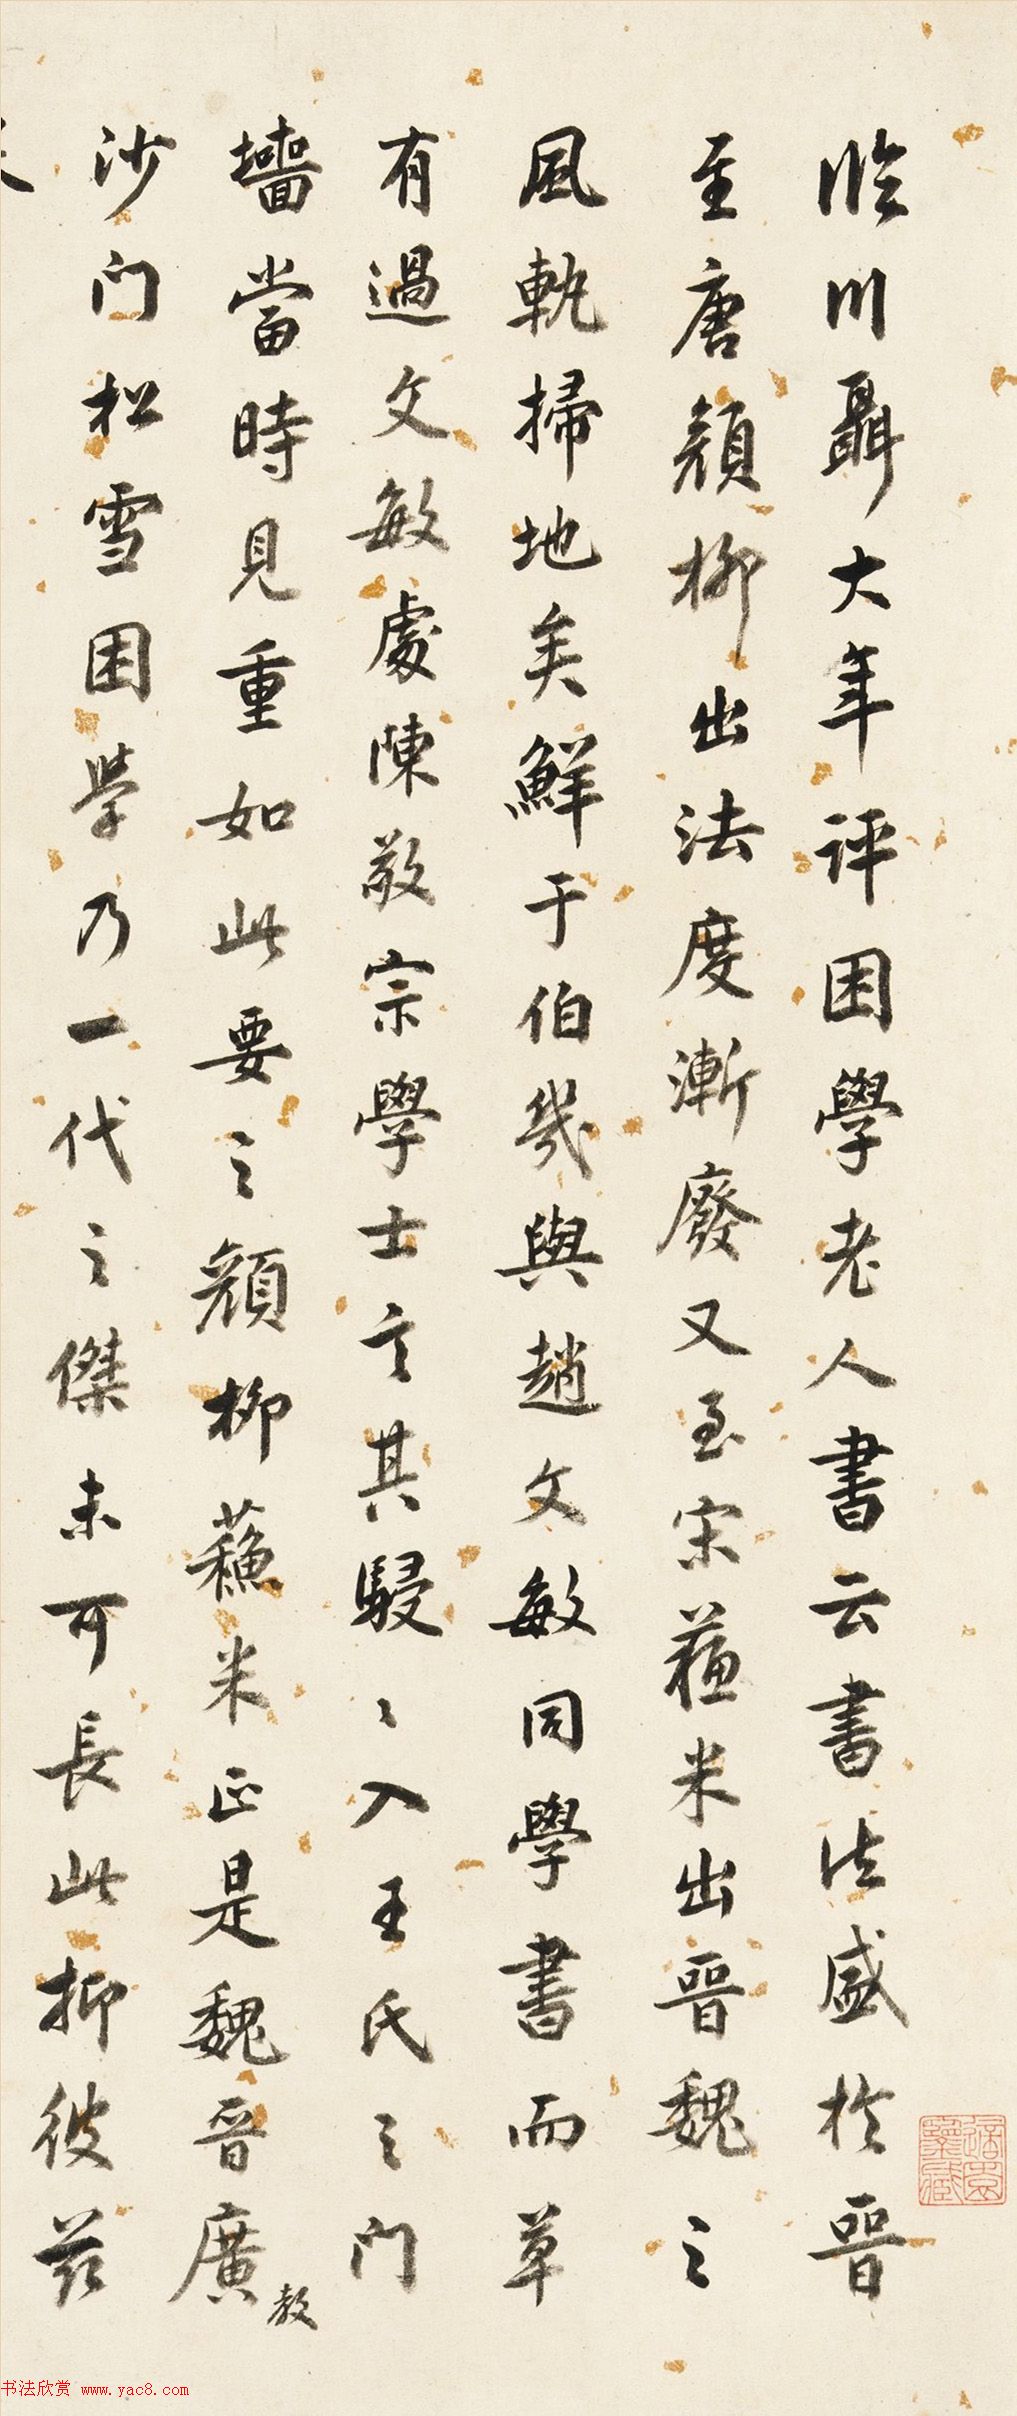 臨川聶大年評困學老人書云書法盛於晉
至唐顏柳出法度漸廢又至宋蘓米出晉魏之
風軌掃地矣鮮于伯幾與趙文敏同學書而草
有過文敏處陳敬宗學士言其駸〻入王氏之門
墻當時見重如此要之顏柳蘓米正是魏晉廣
教
沙门松雪困學乃一代之傑未可長此抑彼茲
书法欣赏 www.yac8.com